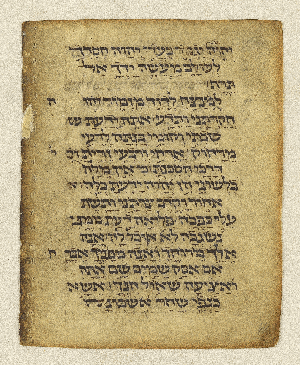 יהוה יגמר בעדי יהוה חסדך
לעולם מעשי ידיך אל
תרף
למנצח לדוד מזמור יהוה
חקרתני ותדע אתה ידעת
שבתי וקומי בנתה לרעי
מרחוק ארחי ורבעי זרית
דרכי הסכנתה כי אין מלה
בלשוני הן יהוה ידעת כלה
אחור וקדם צרתני ותשת
עלי כפכה פלאה דעת ממני
נשגבה לא אוכל לה אנה
אלך מרוחך ואנה מפניך
אם אסק שמים שם אתה
ואציעה שאול הנך אשא
כנפי שחר אשכנה